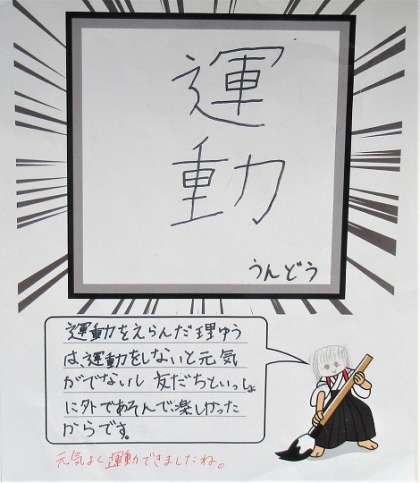 運
動
うんどう
運動をえらんだ理ゆう
は、運動をしないと元気
がでないし 友だちといっしょ
に外であそんで楽しかった
からです。
元気よく運動できましたね。